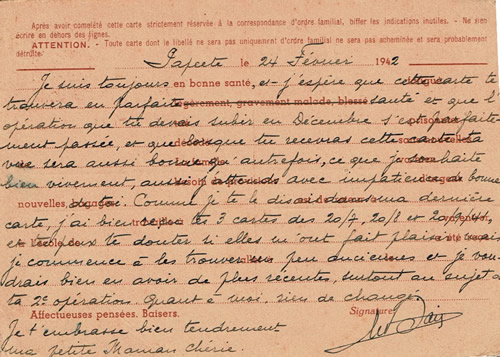 Après avoir complété cette carte strictement réservée à la correspondance d'ordre familial, biffer les indications inutiles. - Ne rien
écrire en dehors des lignes.
ATTENTION. - Toute carte dont le libellé ne sera pas uniquement d'ordre familial ne sera pas acheminée et sera probablement
détruite.
Papeete le 24 Février 1942
Je suis toujours en bonne santé, et j'espère que cette carte te
trouvera en parfaite légèrement, gravement malade, blessé santé et que l'
opération que tu devais subir en Décembre s'est parfaite
ment passée, et que lorsque tu recevras cette carte, ta
vue sera aussi bonne qu'autrefois, ce que je souhaite
bien vivement, aussi j'attends avec impatience de bonnes
nouvelles, de toi. Comme je te le disais dans ma dernière
carte, j'ai bien reçu tes 3 cartes des 20/4, 20/8 et
tu peux te douter si elles m'ont fait plaisir mais
je commence à les trouver un peu anciennes et je vou
drais bien en avoir de plus récentes, surtout au sujet de
ta 2e opération. Quant à moi, rien de changé.
Affectueuses pensées. Baisers. Signature
Je t'embrasse bien tendrement
ma petite Maman chérie.